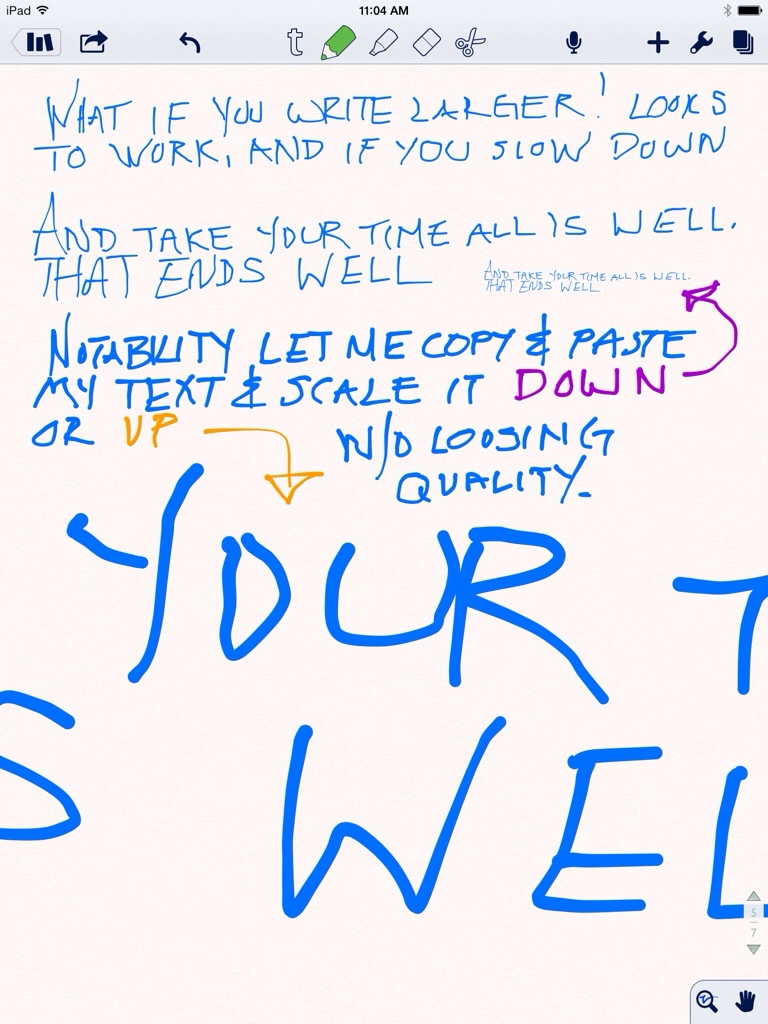 iPad
11:04 AM
t
WHAT IF YOU WRITE LARGER! LOOKS
TO WORK, AND IF YOU SLOW DOWN
AND TAKE YOUR TIME ALL IS WELL.
THAT ENDS WELL
AND TAKE YOUR TIME ALL IS WELL.
THAT ENDS WELL
NOTABILITY LET ME COPY & PASTE
MY TEXT & SCALE IT DOWN
OR UP
W/O LOOSING
QUALITY.
YOUR T
S WEL
5
7